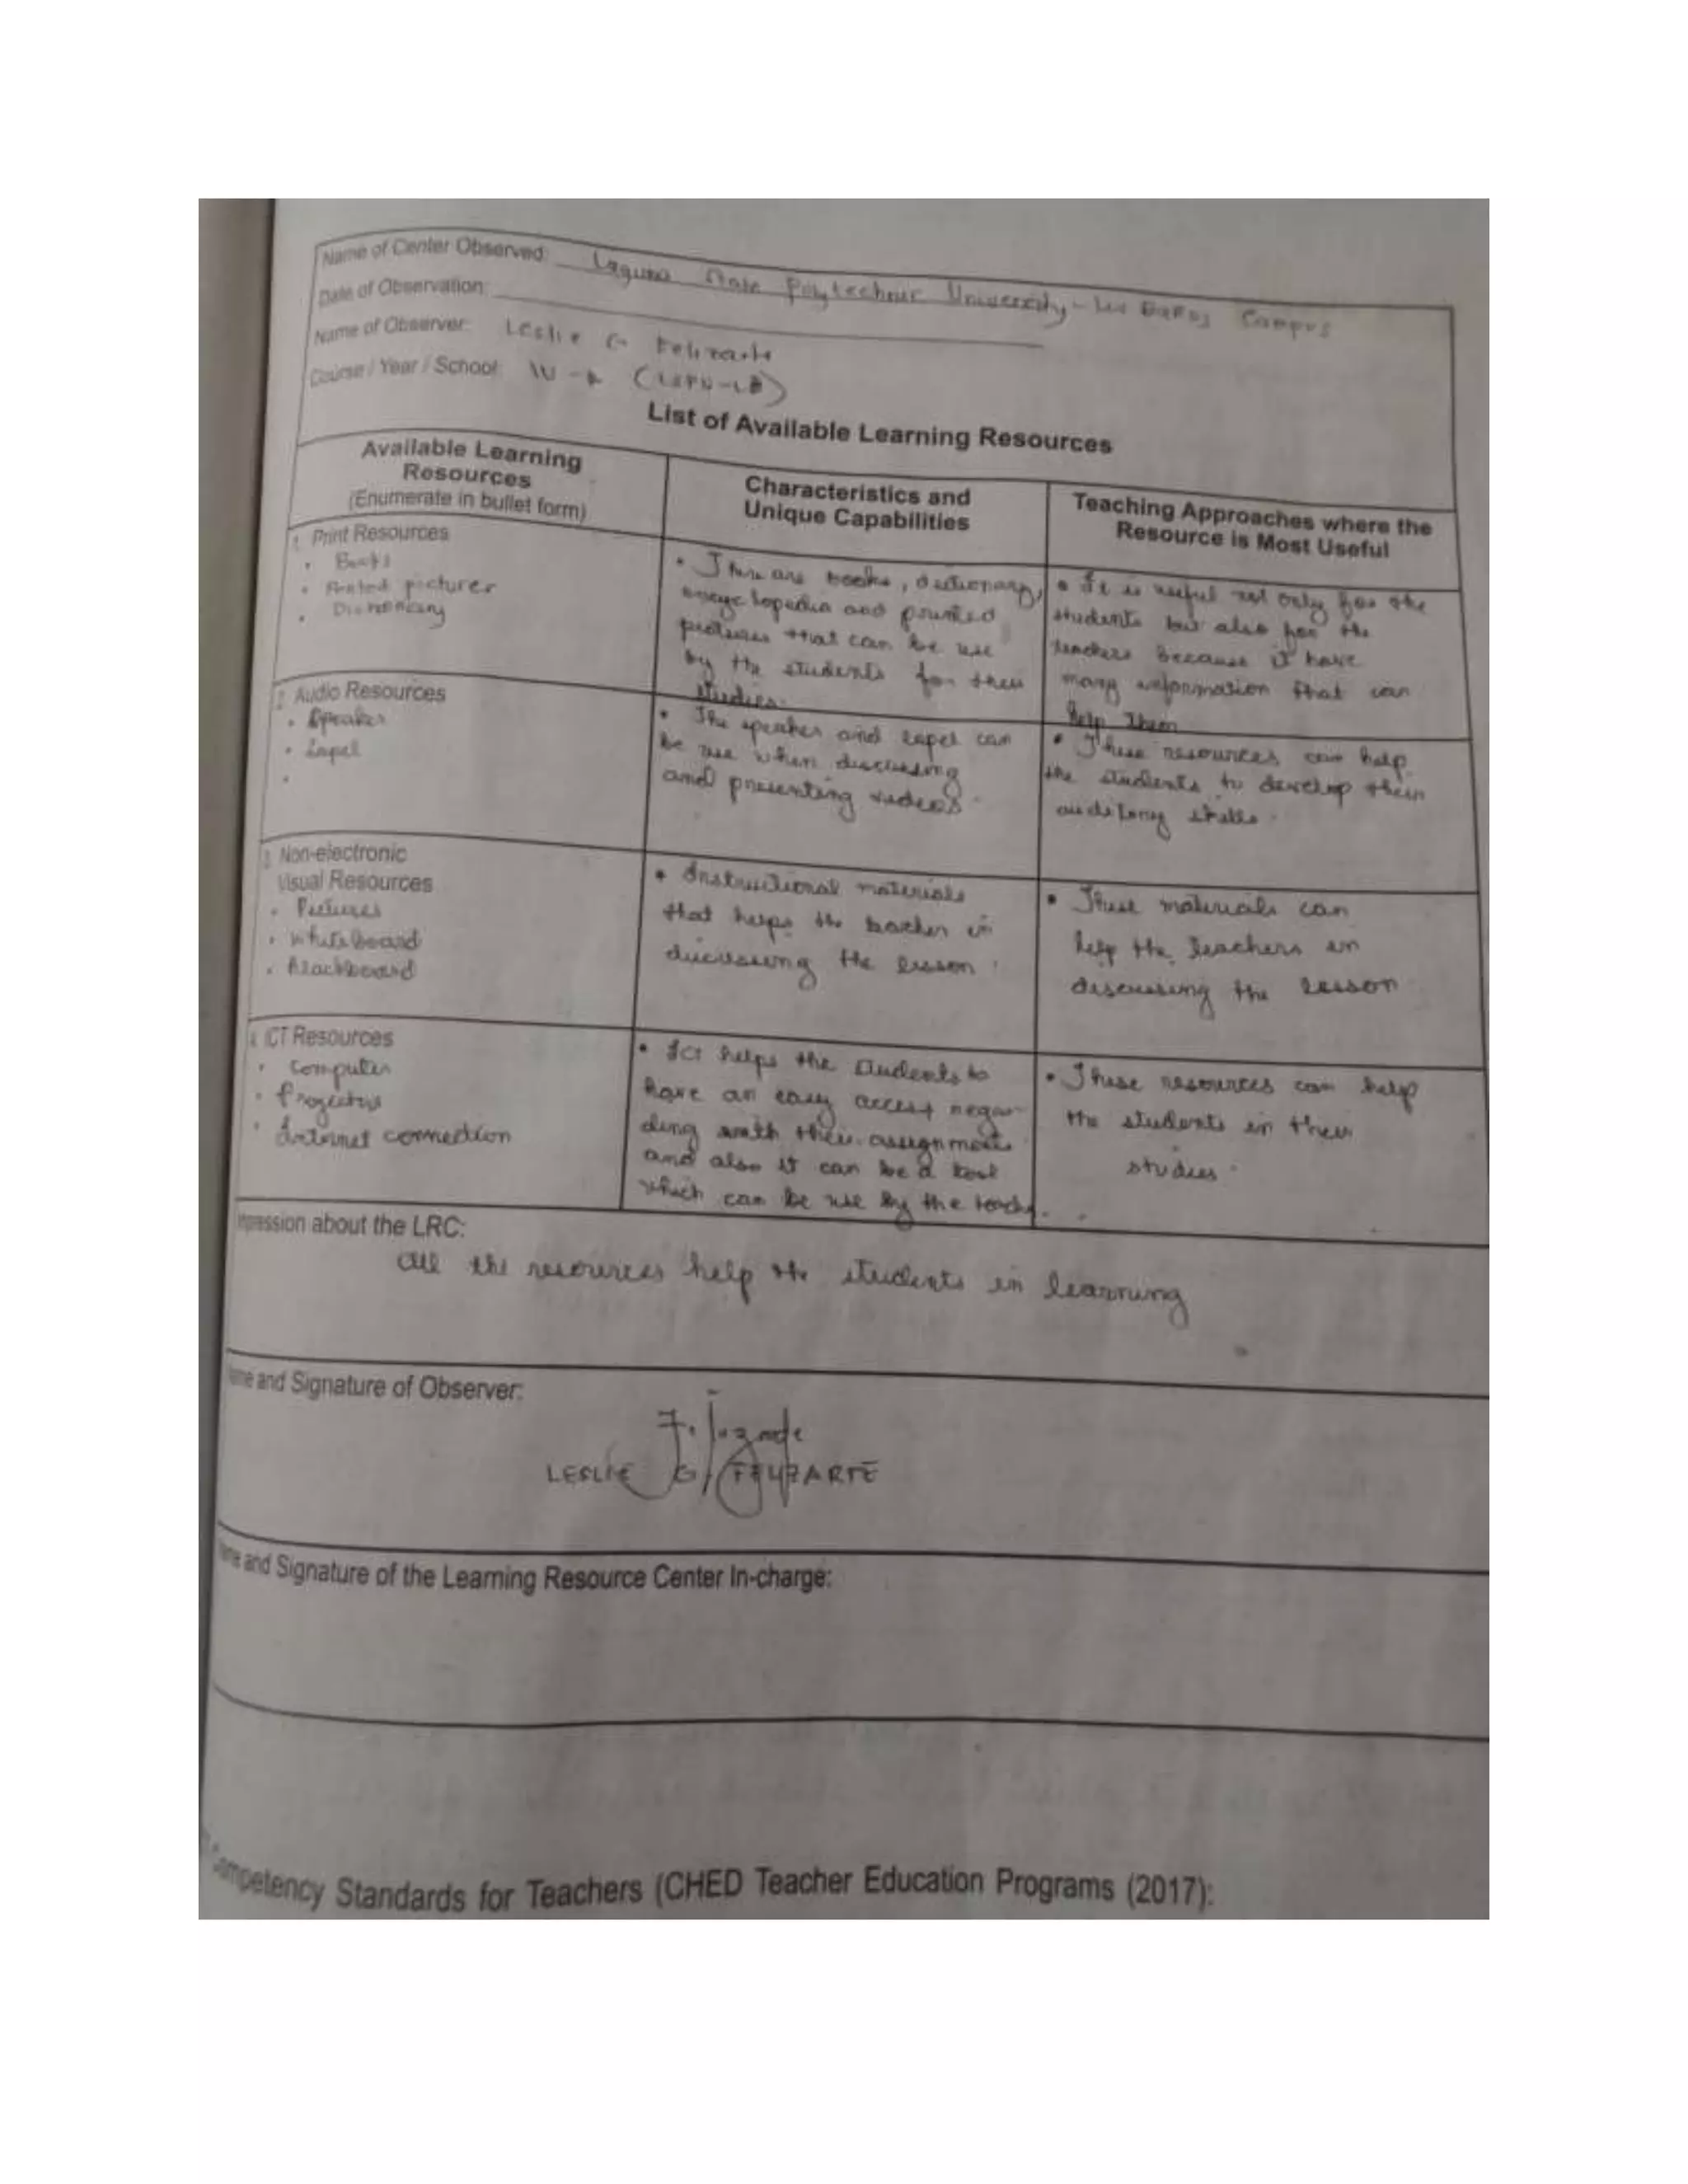 Name of Center Observed: Laguna State Polytechnic University - Los Baños Campus
Date of Observation:
Name of Observer: Leslie G Felizarte
Course / Year / School: IV - A (LSPU-LB)
List of Available Learning Resources
Available Learning
Resources
(Enumerate in bullet form)
Characteristics and
Unique Capabilities
Teaching Approaches where the
Resource is Most Useful
1. Print Resources
• Books
• Printed pictures
• Dictionary
• There are books, dictionary,
encyclopedia and printed
pictures that can be use
by the students for their
studies.
• It is useful not only for the
students but also for the
teachers because it have
many information that can
help them
2. Audio Resources
• Speaker
• Lapel
•
• The speaker and lapel can
be use when discussing
and presenting videos.
• These resources can help
the students to develop their
auditory skills.
3. Non-electronic
Visual Resources
• Pictures
• Whiteboard
• Blackboard
• Instructional materials
that helps the teacher in
discussing the lesson.
• These materials can
help the teachers in
discussing the lesson
4. ICT Resources
• Computer
• Projector
• Internet connection
• ICT helps the students to
have an easy access regar-
ding with their assignments
and also it can be a tool
which can be use by the teacher.
• These resources can help
the students in their
studies.
Impression about the LRC:
All the resources help the students in learning
Name and Signature of Observer:
Felizarte
LESLIE G. FELIZARTE
Name and Signature of the Learning Resource Center In-charge:
Competency Standards for Teachers (CHED Teacher Education Programs (2017):